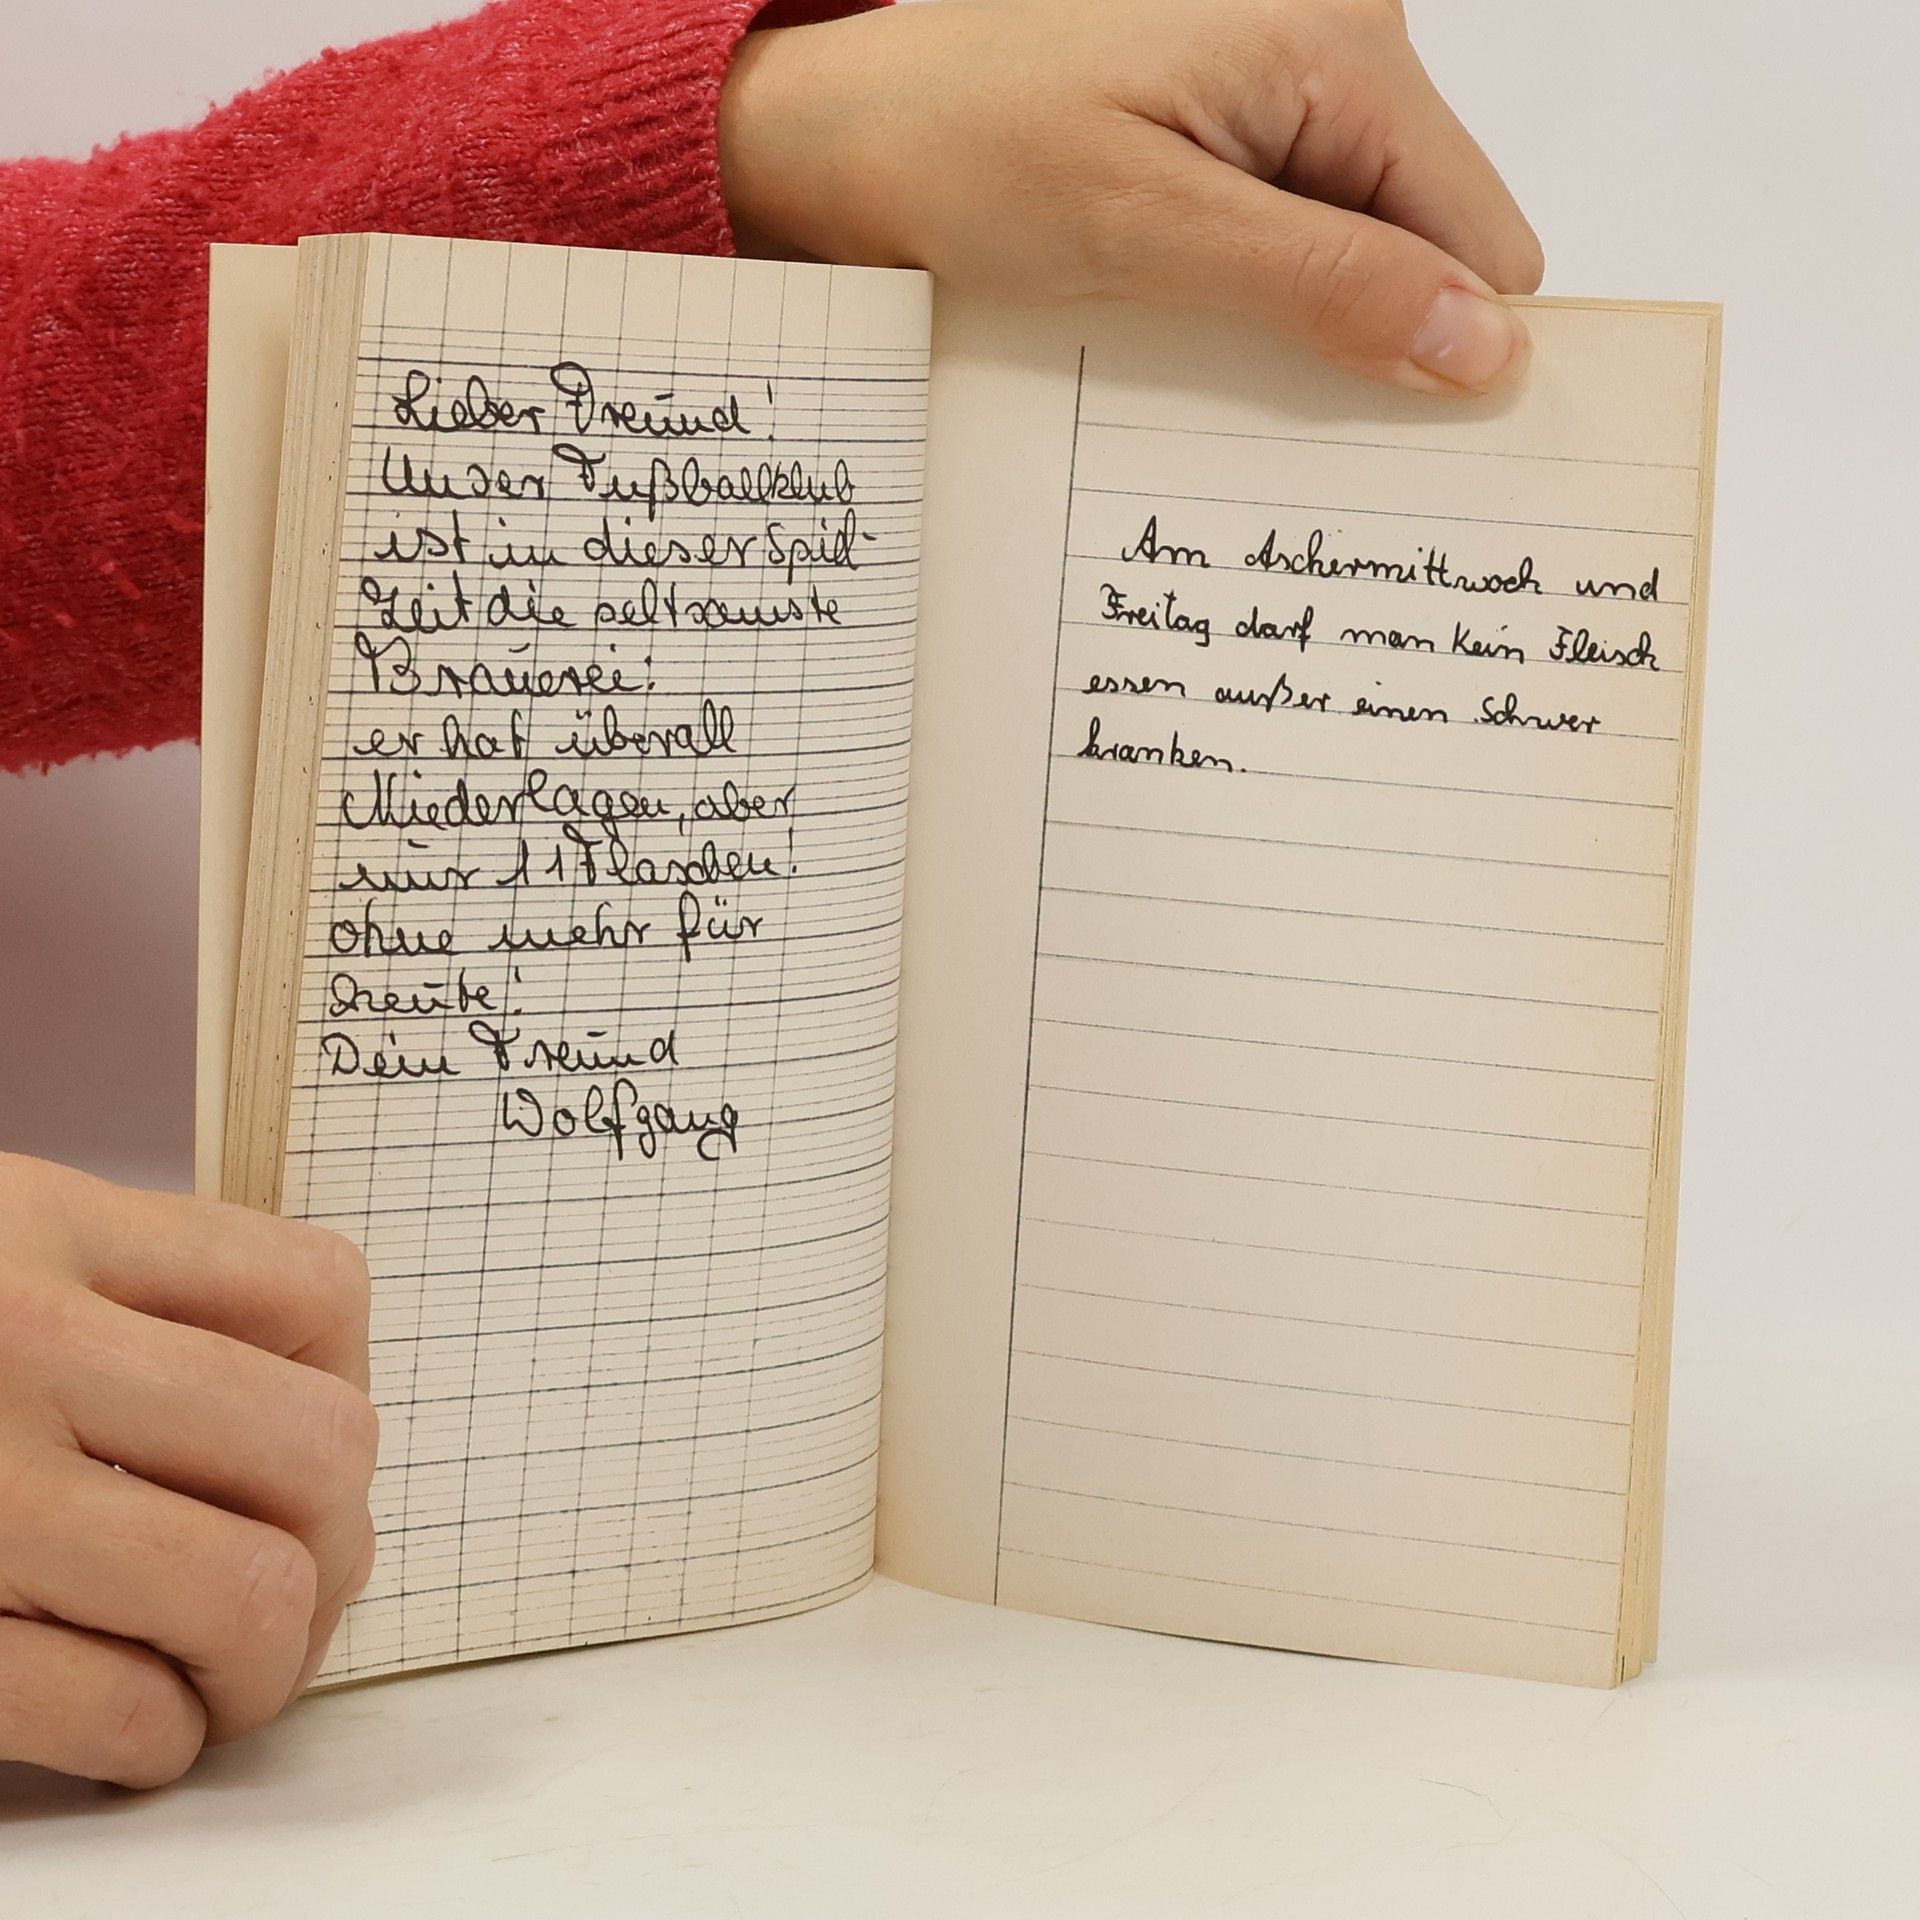 Lieber Freund!
Unser Fußballklub
ist in dieser Spiel-
zeit die seltsamste
Brauerei:
er hat überall
Niederlagen, aber
nur 11 Flaschen!
ohne mehr für
heute!
Dein Freund
Wolfgang
Am Aschermittwoch und
Freitag darf man kein Fleisch
essen außer einen Schwer
kranken.